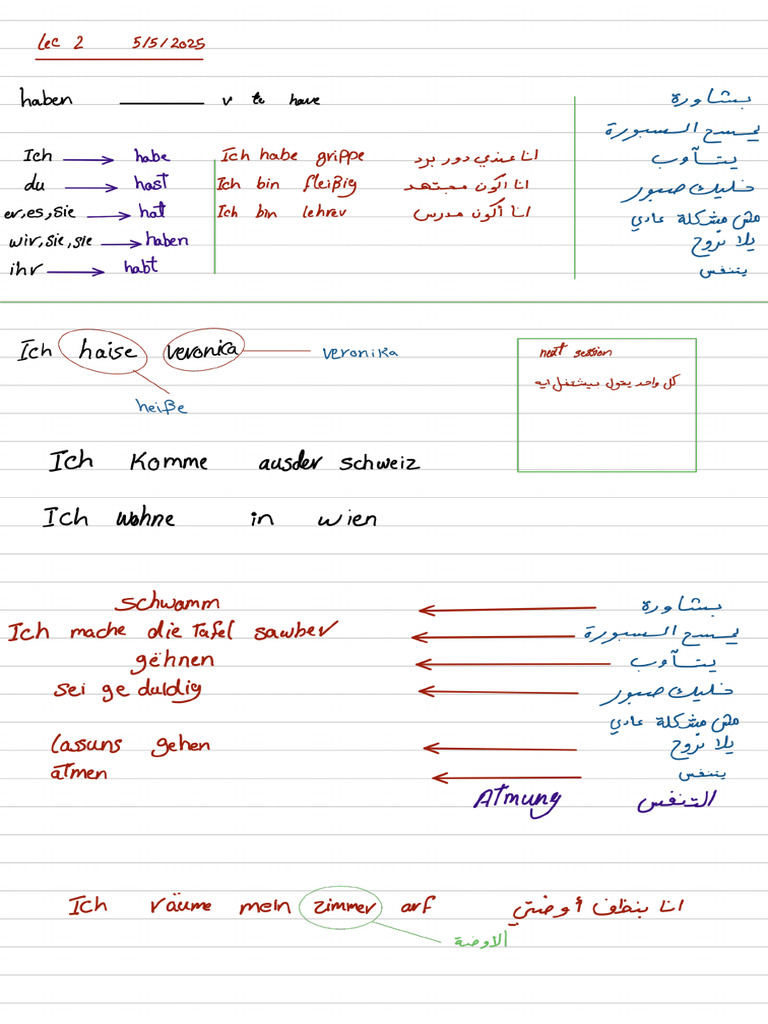 Lec 2 5/5/2025
haben v to have
Ich habe Ich habe grippe انا عندي دور برد
du hast Ich bin fleißig انا اكون مجتهد
er,es,sie hat Ich bin lehrer انا أكون مدرس
wir,sie,sie haben
ihr habt
بشاورة
يمسح السبورة
يتأوب
خليك صبور
مش مشكلة عادي
يلا نروح
يتنفس
Ich haise veronica veronika
heiße
next session
كل واحد يقول بيشتغل ايه
Ich Komme ausder schweiz
Ich wohne in wien
schwamm بشاورة
Ich mache die Tafel sawber يمسح السبورة
gëhnen يتأوب
sei geduldig خليك صبور
مش مشكلة عادي
lassuns gehen يلا نروح
atmen يتنفس
Atmung التنفس
Ich räume mein zimmer arf انا بنظف أوضتي
الاوضة